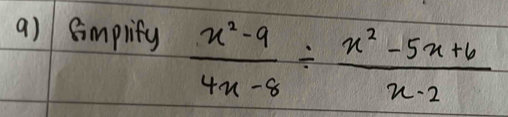 a) Simplify x² - 9 / 4x - 8 ÷ x² - 5x + 6 / x - 2